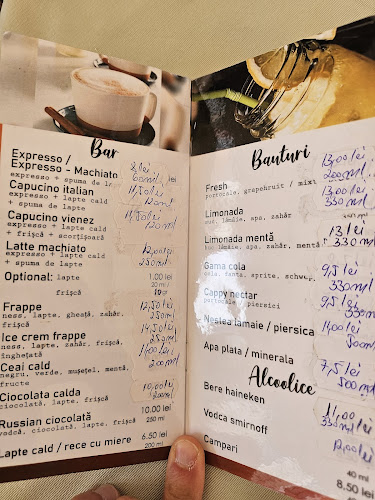 Bar
Expresso /
Expresso - Machiato
expresso + spuma de
lei
60ml
Capucino italian
expresso + lapte cald
+ spuma de lapte
11,50 lei
120ml
Capucino vienez
expresso + lapte cald
+ frișcă + scorțișoară
11,50 lei
120ml
Latte machiato
expresso + lapte cald
+ spuma de lapte
12,00 lei
250ml
Optional: lapte 1.00 lei
20 ml
frișcă
Frappe 12,50 lei
ness, lapte, gheață, zahăr,
frișcă
250ml
Ice crem frappe 14,50 lei
ness, lapte, zahăr, frișcă,
înghețată
250ml
Ceai cald 11,00 lei
negru, verde, mușețel, mentă,
fructe
200ml
Ciocolata calda 10,00 lei
ciocolată, lapte, frișcă
200ml
Russian ciocolată 10.00 lei
vodcă, ciocolată, lapte, frișcă 250 ml
Lapte cald / rece cu miere 6.50 lei
200 ml
Bauturi
Fresh 13,00 lei
portocale, grapehruit / mixt 200ml
Limonada 13,00 lei
suc, lămâie, apa, zahăr 330ml
Limonada mentă 13 lei
suc lămâie, apa, zahăr, mentă 330ml
Gama cola 9,5 lei
cola, fanta, sprite, schwep. 330ml
Cappy nectar 9,5 lei
portocale, piersici 330ml
Nestea lamaie / piersica 11,00 lei
500ml
Apa plata / minerala 7,5 lei
500ml
Alcoolice
Bere haineken 11,00 lei
330ml
Vodca smirnoff 12,00 lei
40 ml
Campari 8.50 lei